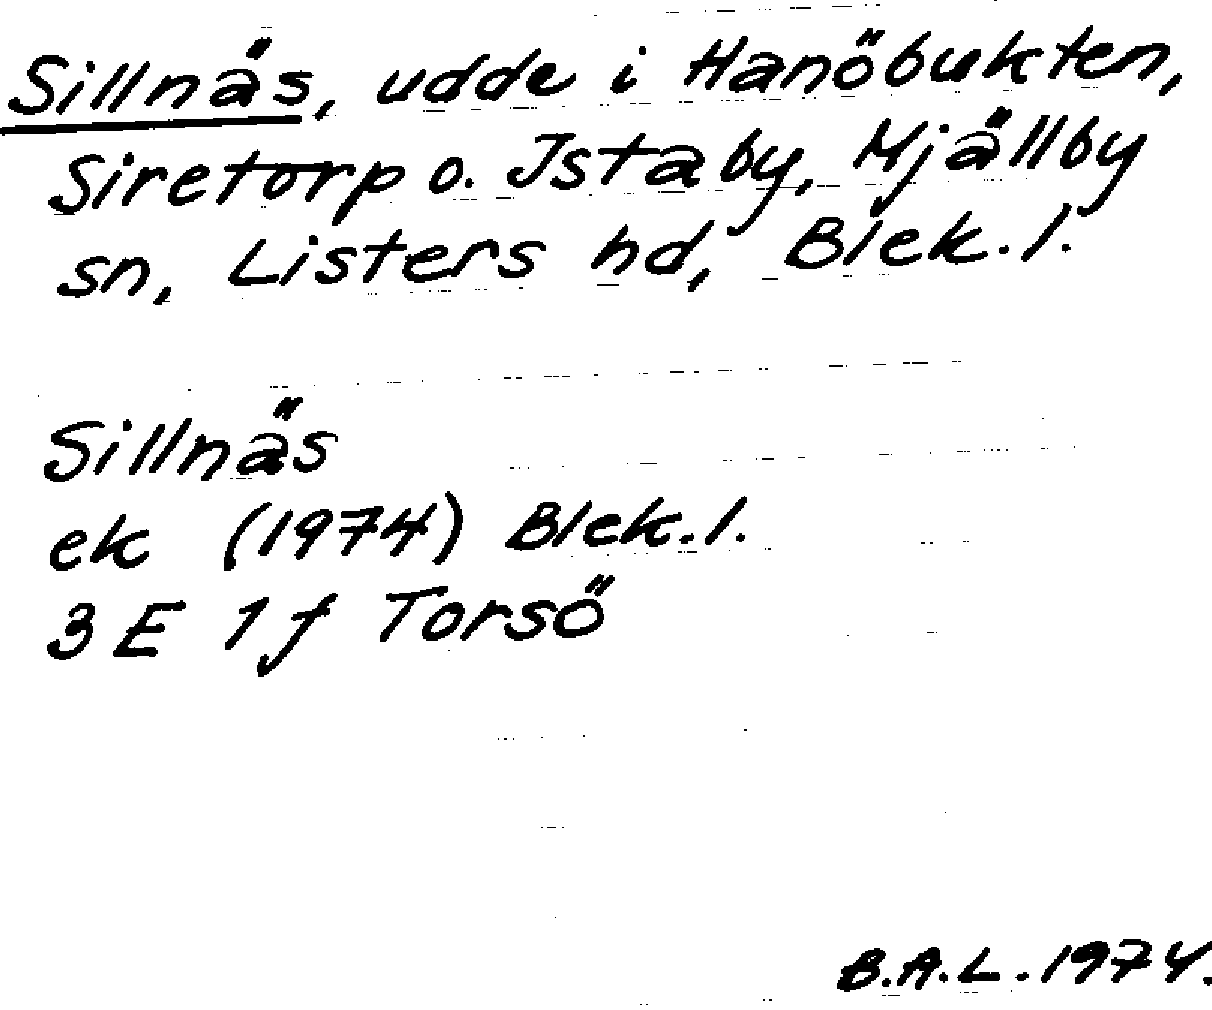 Sillnäs, udde i Hanöbukten,
Siretorp o. Istaby, Mjällby
sn, Listers hd, Blek.l.
Sillnäs
ek (1974) Blek.l.
3 E 1 f Torsö
B.A.L. 1974.